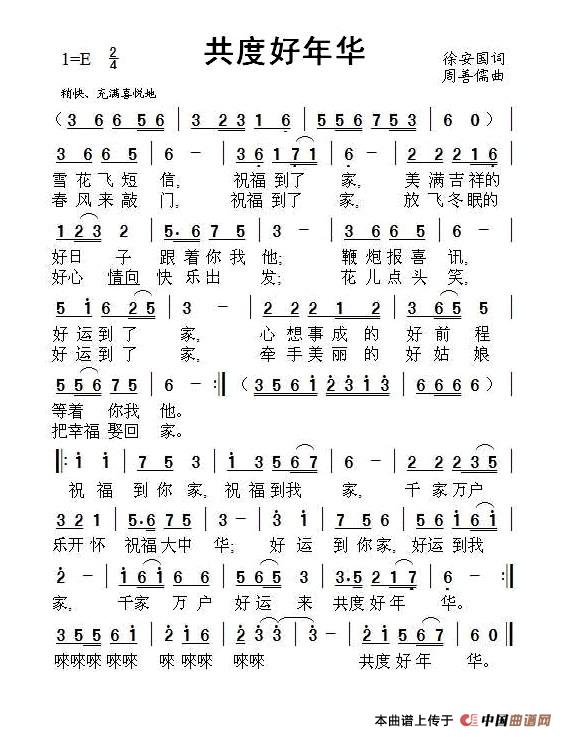 共度好年华
1=E 2/4
徐安国词
周善儒曲
稍快、充满喜悦地
( 3 6 6 5 6 | 3 2 3 1 6 | 3 2 3 5 | 6 6 0 ) |
3 6 6 5 | 6 - | 3 6 1 7 1 | 3 - | 2 2 2 1 6 |
雪花飞短信，祝福到了家，美满吉祥的
春风来敲门，祝福到了家，放飞冬眠的
1 2 3 2 | 5· 6 7 5 | 3 - | 2· 3 7 6 | 5 - |
好日子跟着你我他；鞭炮报喜讯，
好心情向快乐出发；花儿点头笑，
5 1 6 2 5 | 3 - | 2 2 2 1 2 | 3 6 5 5 |
好运到了家，心想事成的好前程
好运到了家，牵手美丽的好姑娘
5 5 6 7 5 | 6 - :| ( 3 5 6 1 2 3 1 3 | 6 6 6 6 ) |
等着你我他。
把幸福娶回家。
|: 1 1 | 7 5 3 | 1· 3 5 6 7 | 6 - | 2 2 2 3 5 |
祝福到你家，祝福到我家，千家万户
3 2 1 | 5· 6 7 5 | 3 - | 3 3 | 2 1 6 | 5· 1 6 1 |
乐开怀祝福大中华；好运到你家，好运到我
2 - | 1 6 1 6 1 | 2 5 3 | 3· 5 2 1 7 | 6 - :|
家，千家万户好运来共度好年华。
3 5 5 6 1 | 2 1 6 | 2 3 3 | 3 - | 2 1 5 6 7 | 6 0 ||
唻唻唻唻唻 唻唻唻 唻唻 共度好年华。
本曲谱上传于 中国曲谱网